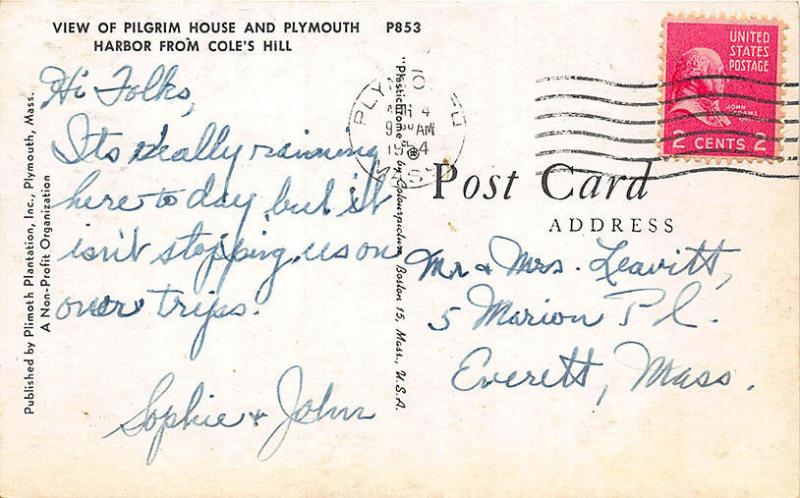 VIEW OF PILGRIM HOUSE AND PLYMOUTH P853
HARBOR FROM COLE'S HILL
Hi Folks,
Its really raining
here to day, but it
isn't stopping us on
over trips.
Sophie & John
Published by Plimoth Plantation, Inc., Plymouth, Mass.
A Non-Profit Organization
"Plastichrome" ® by Colourpicture, Boston 15, Mass., U.S.A.
9 AM
MASS
UNITED
STATES
POSTAGE
JOHN
ADAMS
2 CENTS 2
Post Card
ADDRESS
Mr & Mrs. Leavitt,
5 Marion Pl.
Everett, Mass.